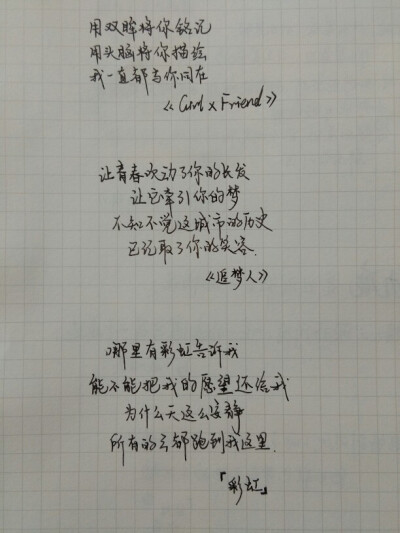 用双眸将你铭记
用头脑将你描绘
我一直都与你同在
《Card x Friend》
让青春吹动了你的长发
让它牵引你的梦
不知不觉这城市的历史
已记取了你的笑容.
《追梦人》
哪里有彩虹告诉我
能不能把我的愿望还给我
为什么天这么安静
所有的云都跑到我这里.
「彩虹」